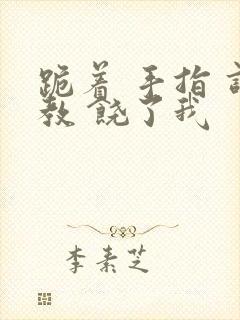 跪着 手指 调
教 饶了我
李素芝